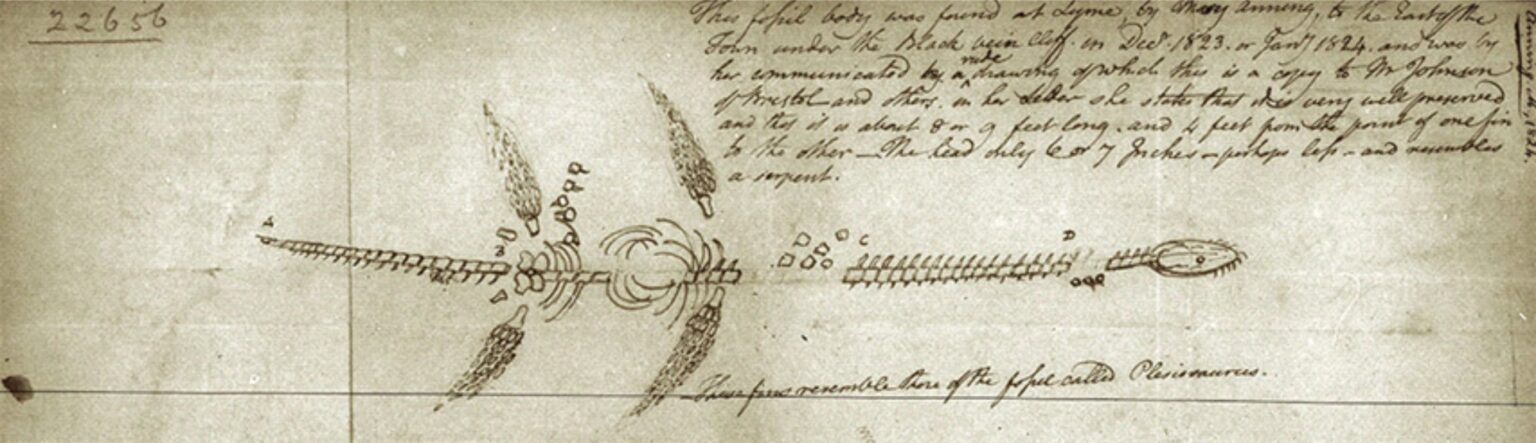 22656
This fossil body was found at Lyme, by Mary Anning, to the East of the
Town under the Black vein Cliff. in Decr. 1823. or Jany 1824. and was by
her communicated by a rude drawing of which this is a copy to Mr Johnson
of Bristol and others. in her Letter she states that it is very well preserved
and that it is about 8 or 9 feet long. and 4 feet from the point of one fin
to the other — The head only 6 or 7 Inches — perhaps less — and resembles
a serpent.
A
B
C
D
— These fins resemble those of the fossil called Plesiosaurus.